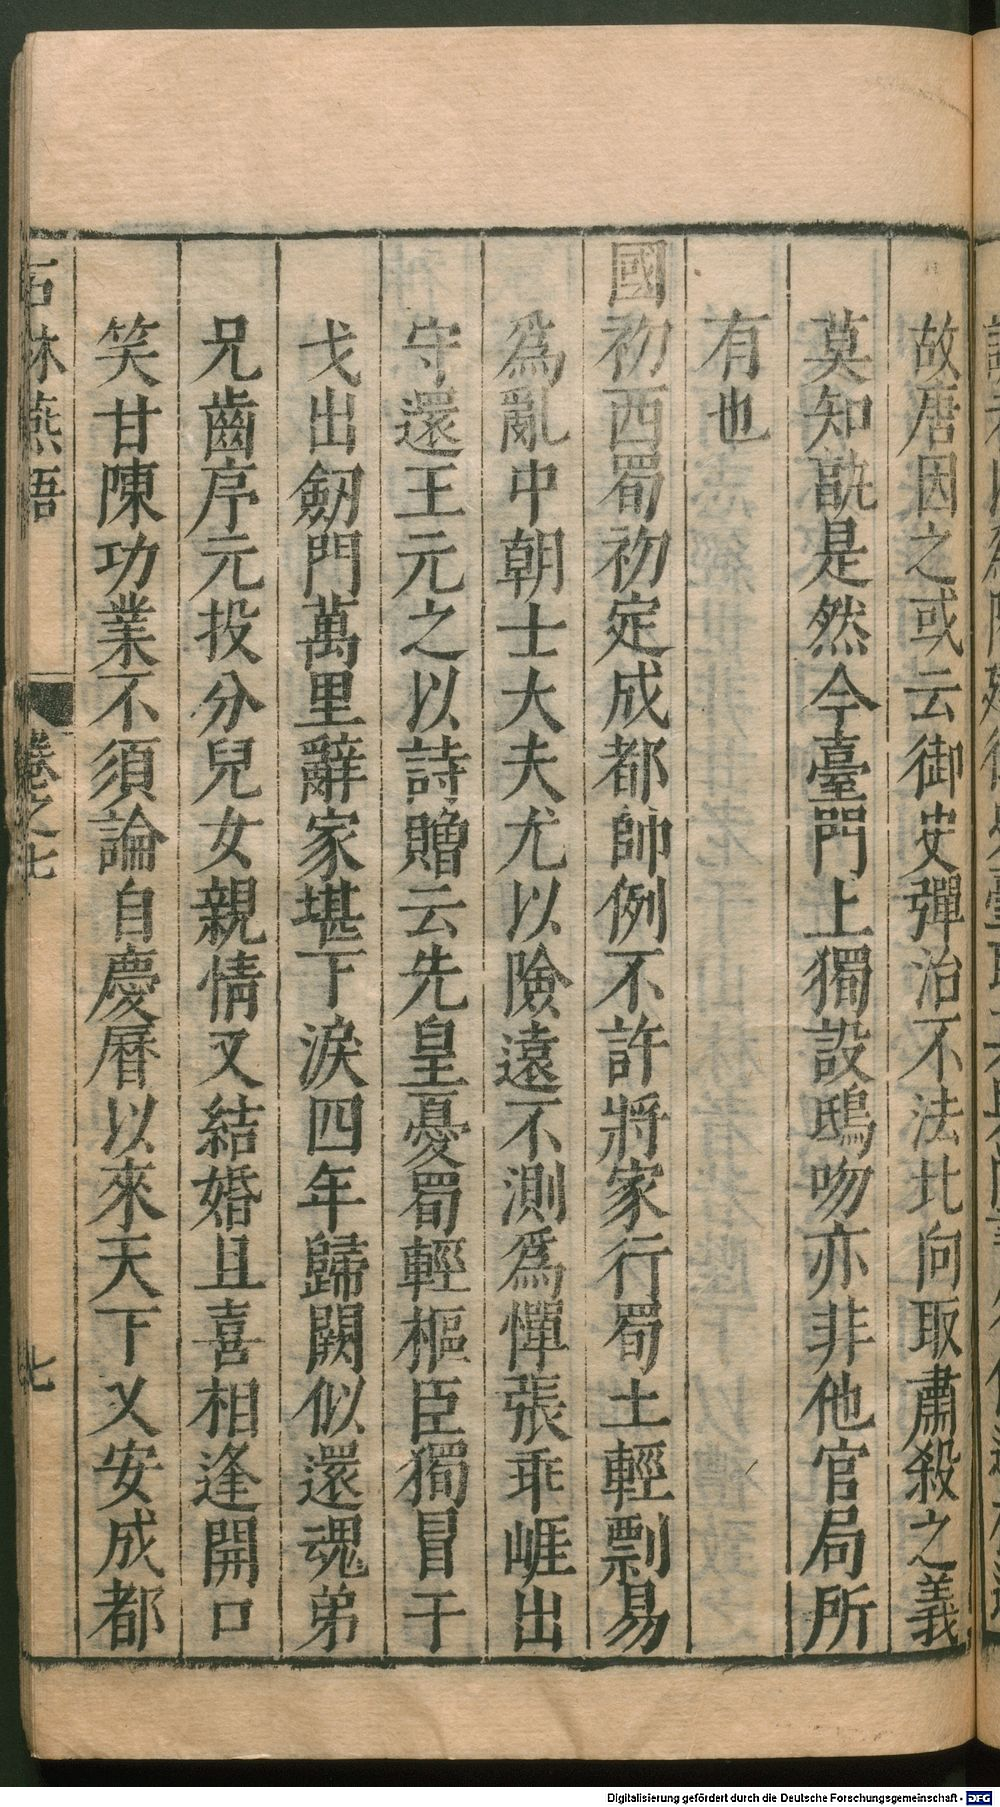 故唐因之或云御史彈治不法北向取肅殺之義
莫知孰是然今臺門上獨設鴟吻亦非他官局所
有也
國初西蜀初定成都帥例不許將家行蜀土輕剽易
爲亂中朝士大夫尤以險遠不測爲憚張乖崖出
守還王元之以詩贈云先皇憂蜀輕樞臣獨冒干
戈出劒門萬里辭家堪下淚四年歸闕似還魂弟
兄齒序元投分兒女親情又結婚且喜相逢開口
笑甘陳功業不須論自慶曆以來天下乂安成都
石林燕語 卷之七 七
Digitalisierung gefördert durch die Deutsche Forschungsgemeinschaft - DFG